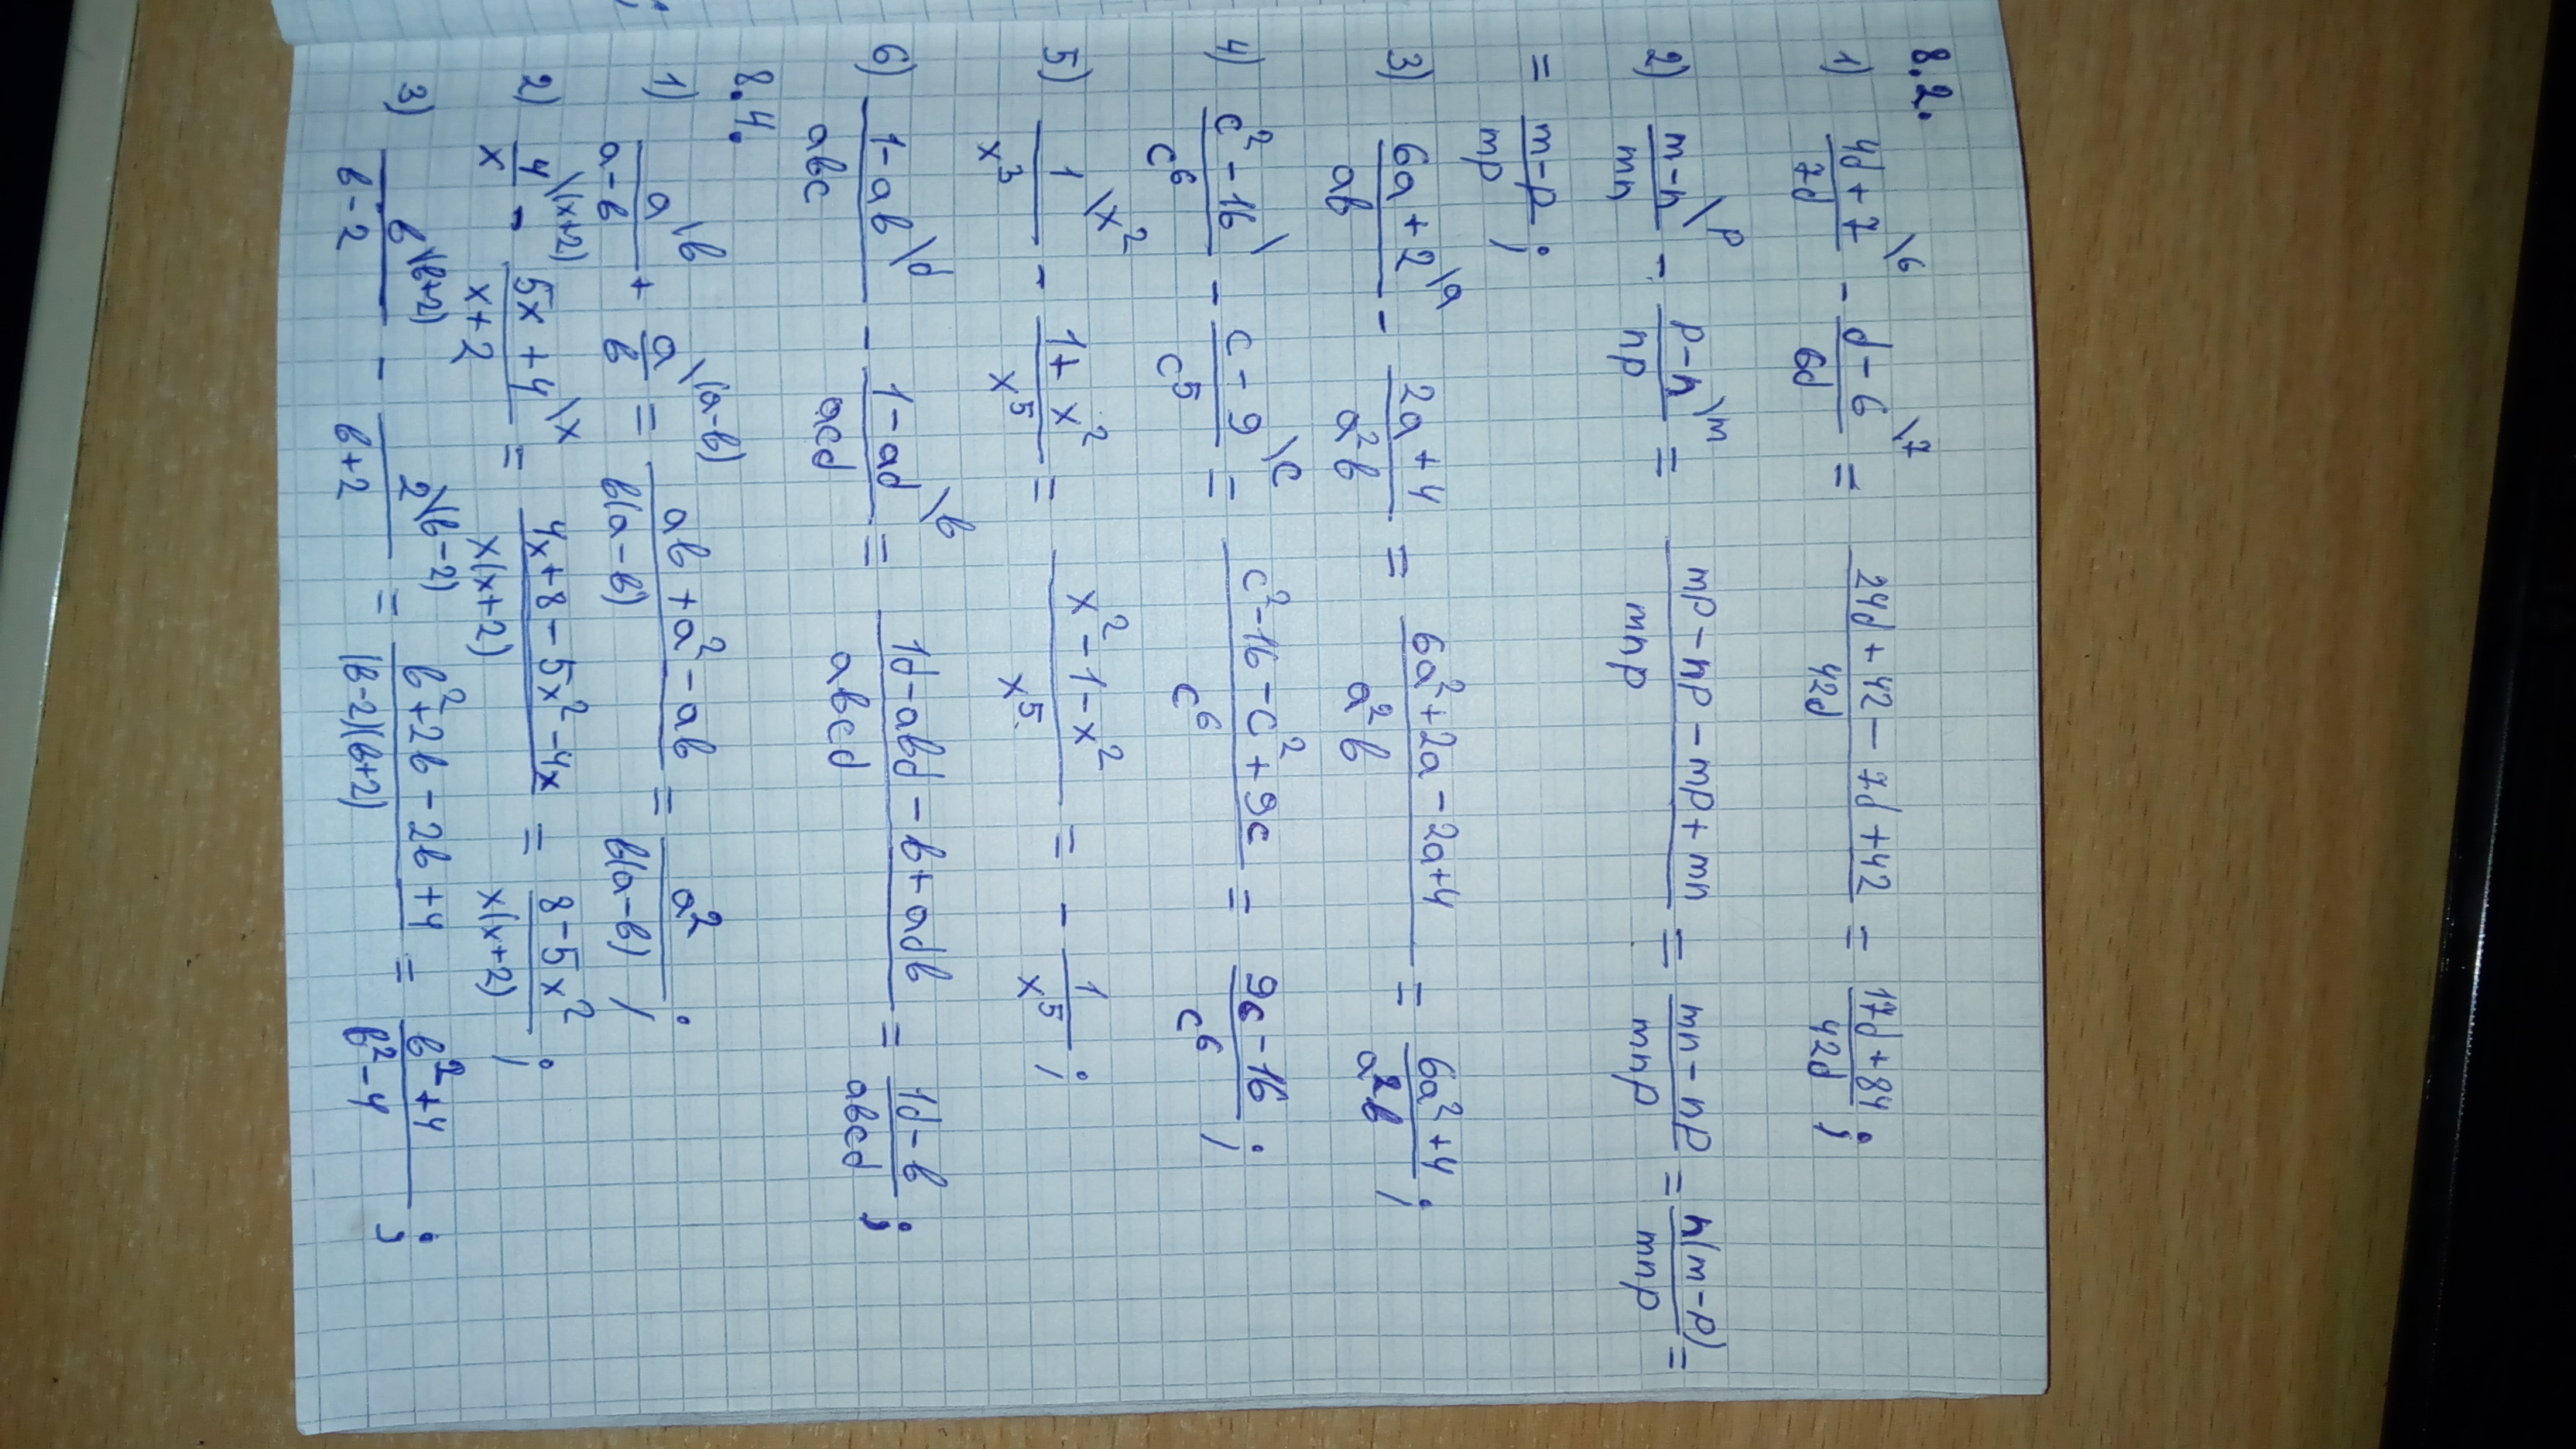 8.2.
1) (4d+7)/7d \6 - (d-6)/6d \7 = (24d+42-7d+42)/42d = (17d+84)/42d ;
2) (m-n)/mn \p - (p-n)/np \m = (mp-np-mp+mn)/mnp = (mn-np)/mnp = n(m-p)/mnp =
= (m-p)/mp ;
3) (6a+2)/ab \a - (2a+4)/a²b = (6a²+2a-2a+4)/a²b = (6a²+4)/a²b ;
4) (c²-16)/c⁶ \ - (c-9)/c⁵ \c = (c²-16-c²+9c)/c⁶ = (9c-16)/c⁶ ;
5) 1/x³ \x² - (1+x²)/x⁵ = (x²-1-x²)/x⁵ = - 1/x⁵ ;
6) (1-ab)/abc \d - (1-ad)/acd \b = (1d-abd-b+adb)/abcd = (1d-b)/abcd ;
8.4.
1) a/(a-b) \b + a/b \(a-b) = (ab+a²-ab)/b(a-b) = a²/b(a-b) ;
2) 4/x \(x+2) - (5x+4)/(x+2) \x = (4x+8-5x²-4x)/x(x+2) = (8-5x²)/x(x+2) ;
3) b/(b-2) \(b+2) - 2/(b+2) \(b-2) = (b²+2b-2b+4)/(b-2)(b+2) = (b²+4)/(b²-4) ;